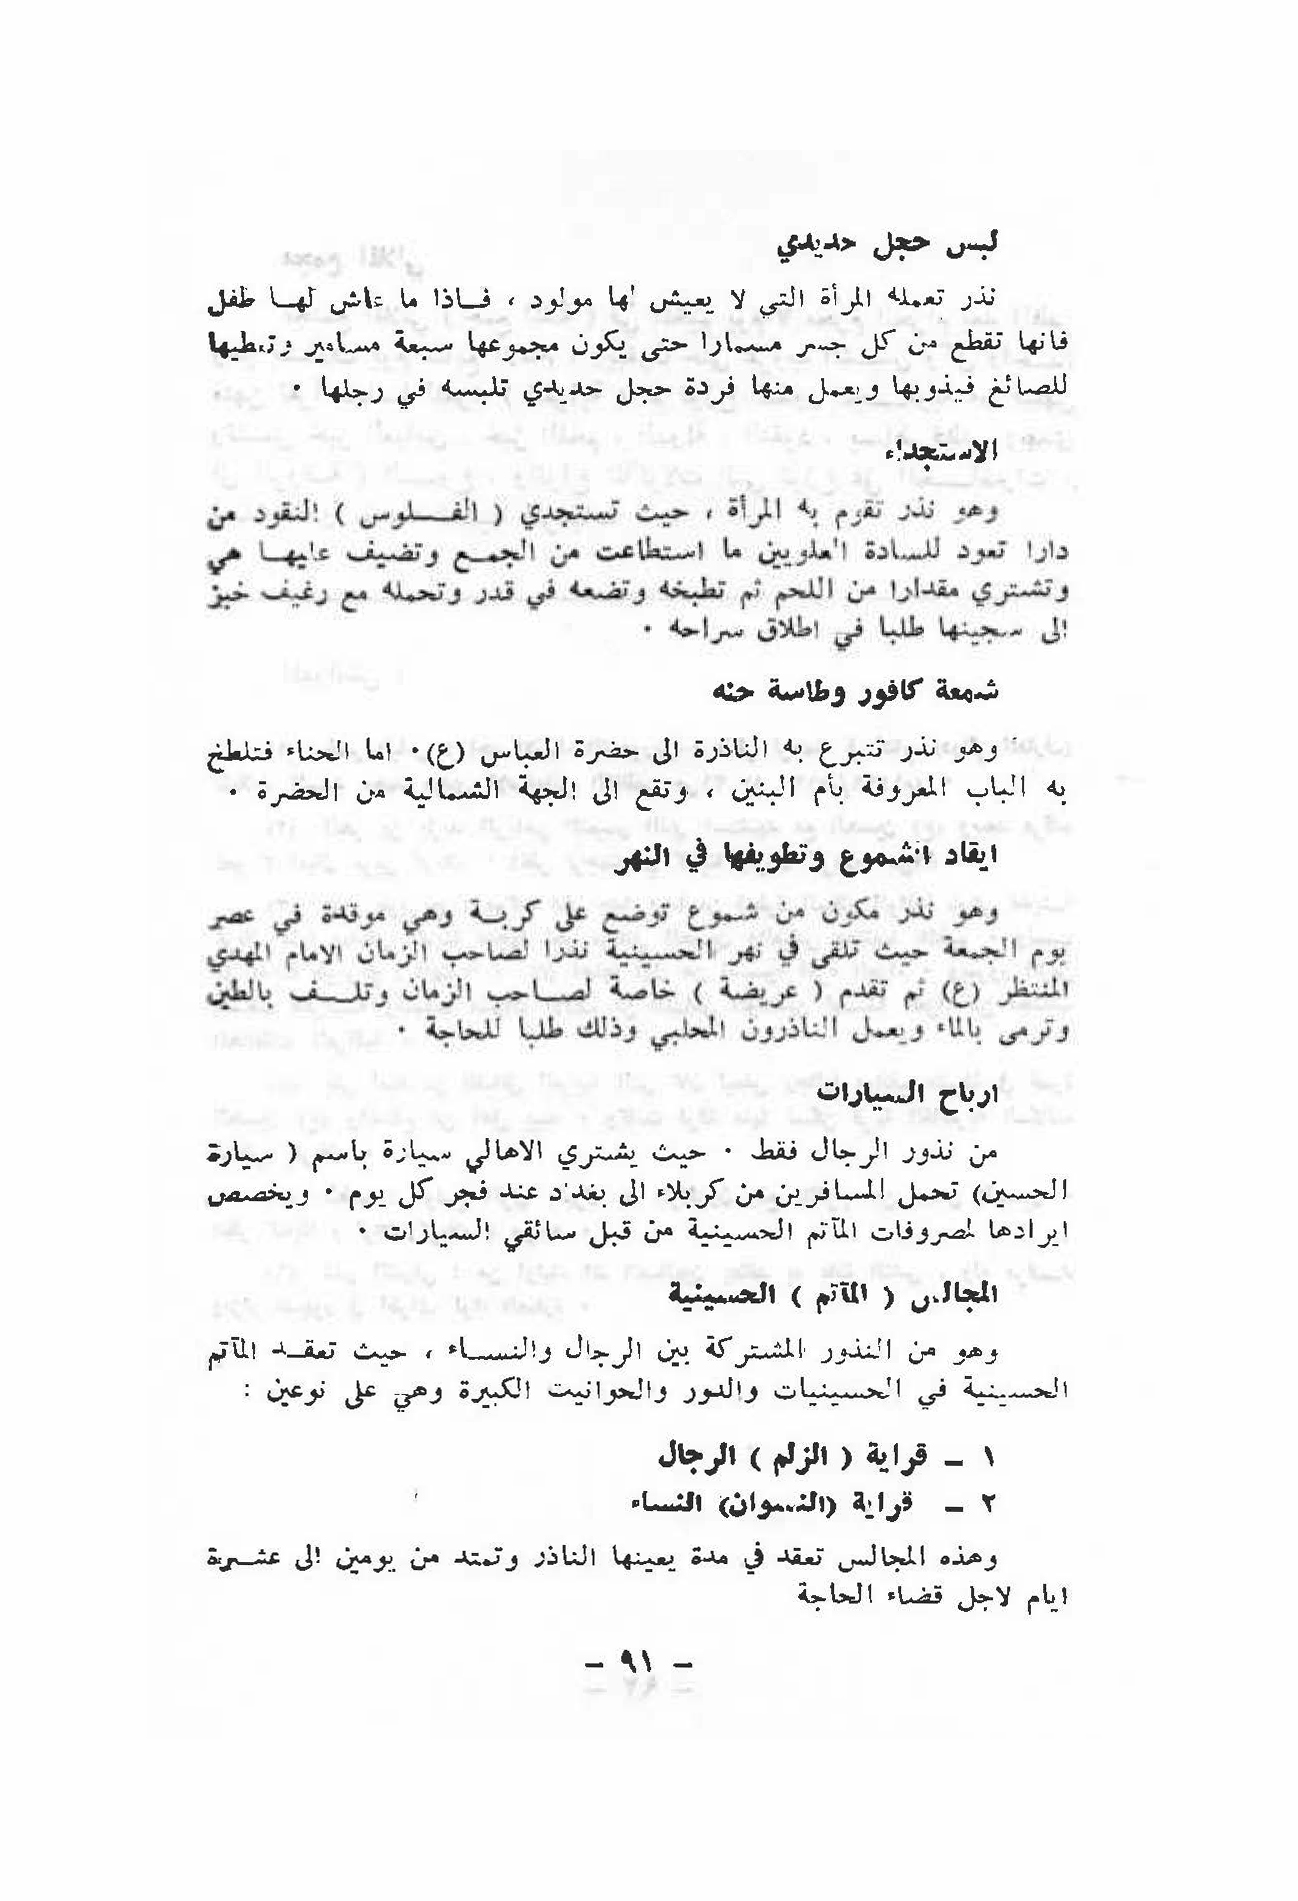 لبس حجل حديدي
نذر تعمله المرأة التي لا يعيش لها مولود ، فاذا ما عاش لها طفل
فانها تقطع من كل جسر مسمارا حتى يكون مجموعها سبعة مسامير وتعطيها
للصائغ فيذوبها ويعمل منها فردة حجل حديدي تلبسه في رجلها ٠
الاستجداء
وهو نذر تقوم به المرأة ، حيث تستجدي ( الفلوس ) النقود من
دارا تعود للسادة العلويين ما استطاعت من الجمع وتضيف عليها هي
وتشتري مقدارا من اللحم ثم تطبخه وتضعه في قدر وتحمله مع رغيف خبز
الى سجينها طلبا في اطلاق سراحه ٠
شمعة كافور وطاسة حنه
وهو نذر تتبرع به الناذرة الى حضرة العباس (ع)٠ اما الحناء فتلطخ
به الباب المعروفة بأم البنين ، وتقع الى الجهة الشمالية من الحضرة ٠
ايقاد الشموع وتطويفها في النهر
وهو نذر مكون من شموع توضع على كربة وهي موقدة في عصر
يوم الجمعة حيث تلقى في نهر الحسينية نذرا لصاحب الزمان الامام المهدي
المنتظر (ع) ثم تقدم ( عريضة ) خاصة لصاحب الزمان وتلف بالطين
وترمى بالماء ويعمل الناذرون المحلبي وذلك طلبا للحاجة ٠
ارباح السيارات
من نذور الرجال فقط ٠ حيث يشتري الاهالي سيارة باسم ( سيارة
الحسين) تحمل المسافرين من كربلاء الى بغداد عند فجر كل يوم ٠ ويخصص
ايرادها لمصروفات المآتم الحسينية من قبل سائقي السيارات ٠
المجالس ( المآتم ) الحسينية
وهو من النذور المشتركة بين الرجال والنساء ، حيث تعقد المآتم
الحسينية في الحسينيات والدور والحوانيت الكبيرة وهي على نوعين :
١ ـ قراية ( الزلم ) الرجال
٢ ـ قراية (النسوان) النساء
وهذه المجالس تعقد في مدة يعينها الناذر وتمتد من يومين الى عشرة
ايام لاجل قضاء الحاجة
ـ ٩١ ـ